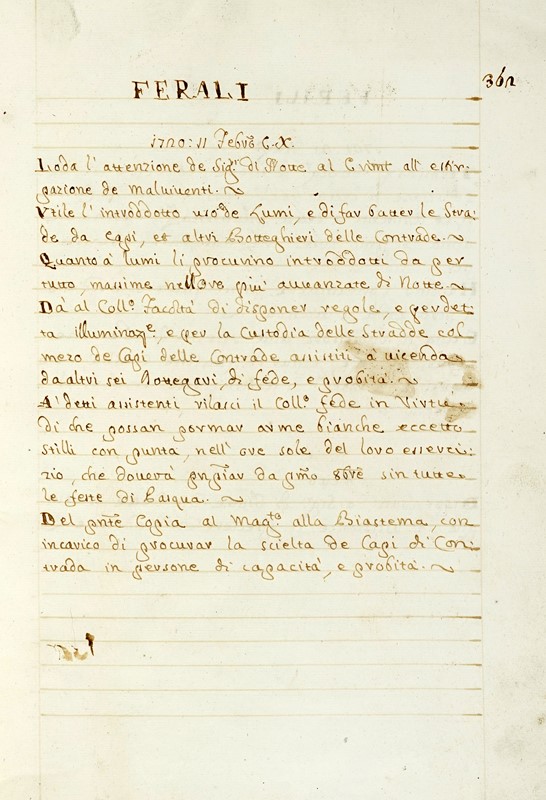 362
FERALI
1720: 11 Febrõ C.X.
Loda l'attenzione de Sigri di Notte al Crimt all'estir-
pazione de malviventi.
Vtile l'introddotto uso de Lumi, e di far batter le Stra-
de da Capi, et altri Botteghieri delle Contrade.
Quanto à lumi li procurino introddotti da per
tutto, massime nell'ore più avvanzate di Notte.
Dà al Collo Facoltà di disponer regole, e per det-
ta illuminaze, e per la Custodia delle Stradde col
mezo de Capi delle Contrade assistiti à vicenda
da altri sei Bottegari, di fede, e probità.
A' detti assistenti rilasci il Collo fede in Virtù
di che possan portar arme bianche eccetto
stilli con punta, nell'ore sole del loro esserci-
zio, che doverà prñpiar da pmõ 8bre sin tutte
le feste di Pasqua.
Del pñte Copia al Magto alla Biastema, con
incarico di procurar la scielta de Capi di Con-
trada in persone di capacità, e probità.